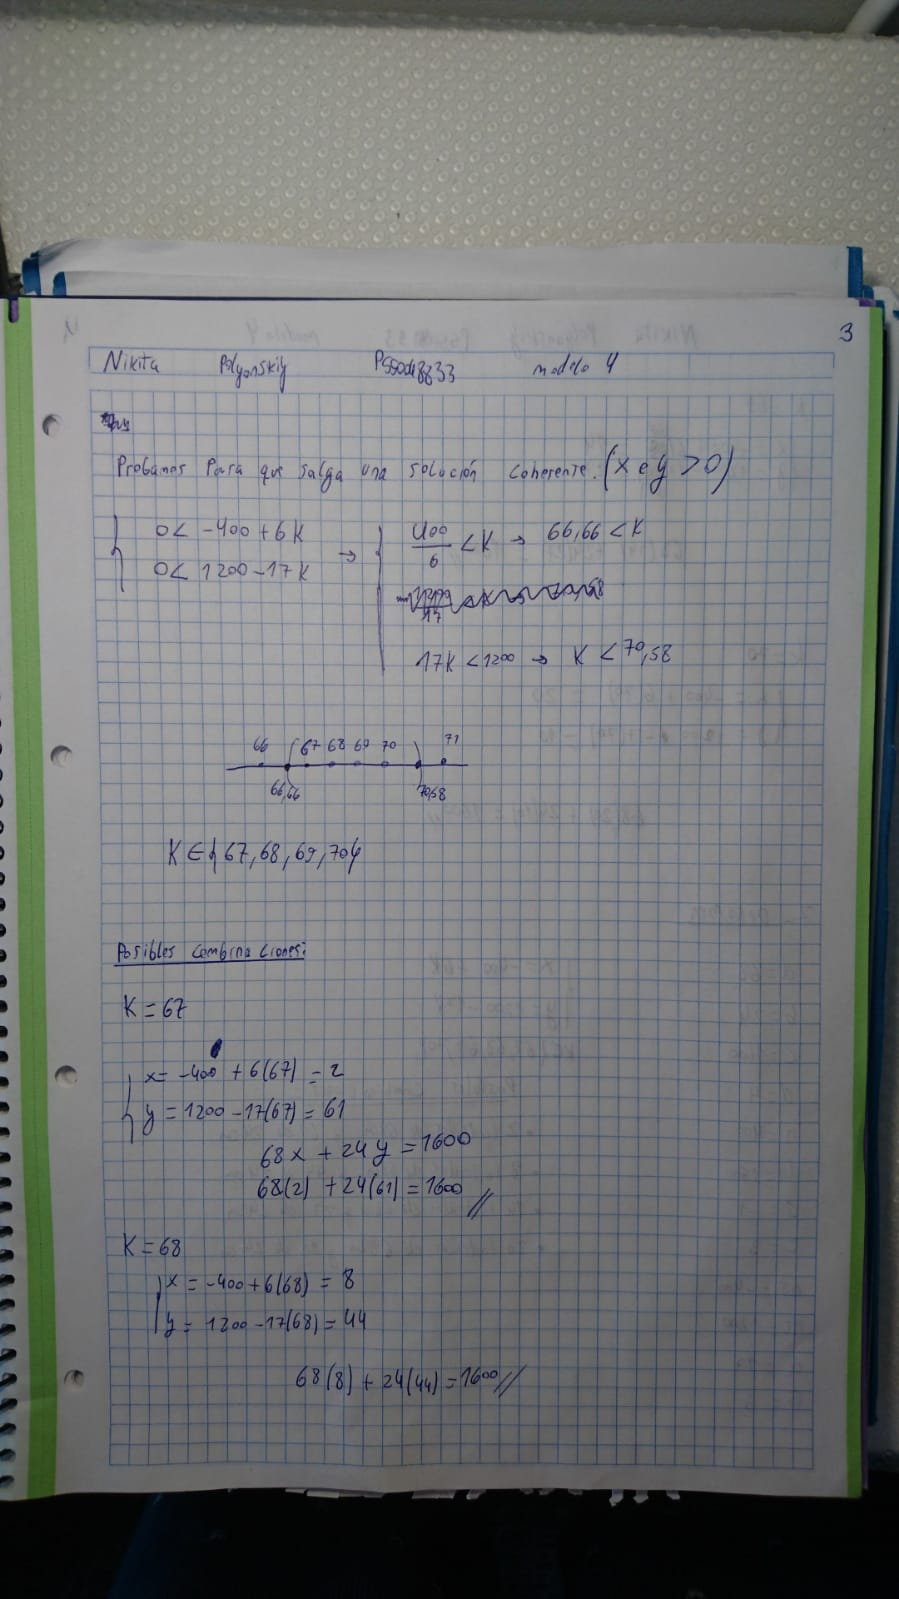 3
Nikita Polyanskiy modelo 4
Probamos Para que salga una solución coherente. (x e y > 0)
0 < -400 + 6K → 400/6 < K → 66,66 < K
0 < 1200 - 17K
17K < 1200 → K < 70,58
66 ( 67 68 69 70 ) 71
66,66 70,58
K ∈ { 67, 68, 69, 70 }
Posibles combinaciones:
K = 67
x = -400 + 6(67) = 2
y = 1200 - 17(67) = 61
68x + 24y = 1600
68(2) + 24(61) = 1600 //
K = 68
x = -400 + 6(68) = 8
y = 1200 - 17(68) = 44
68(8) + 24(44) = 1600 //